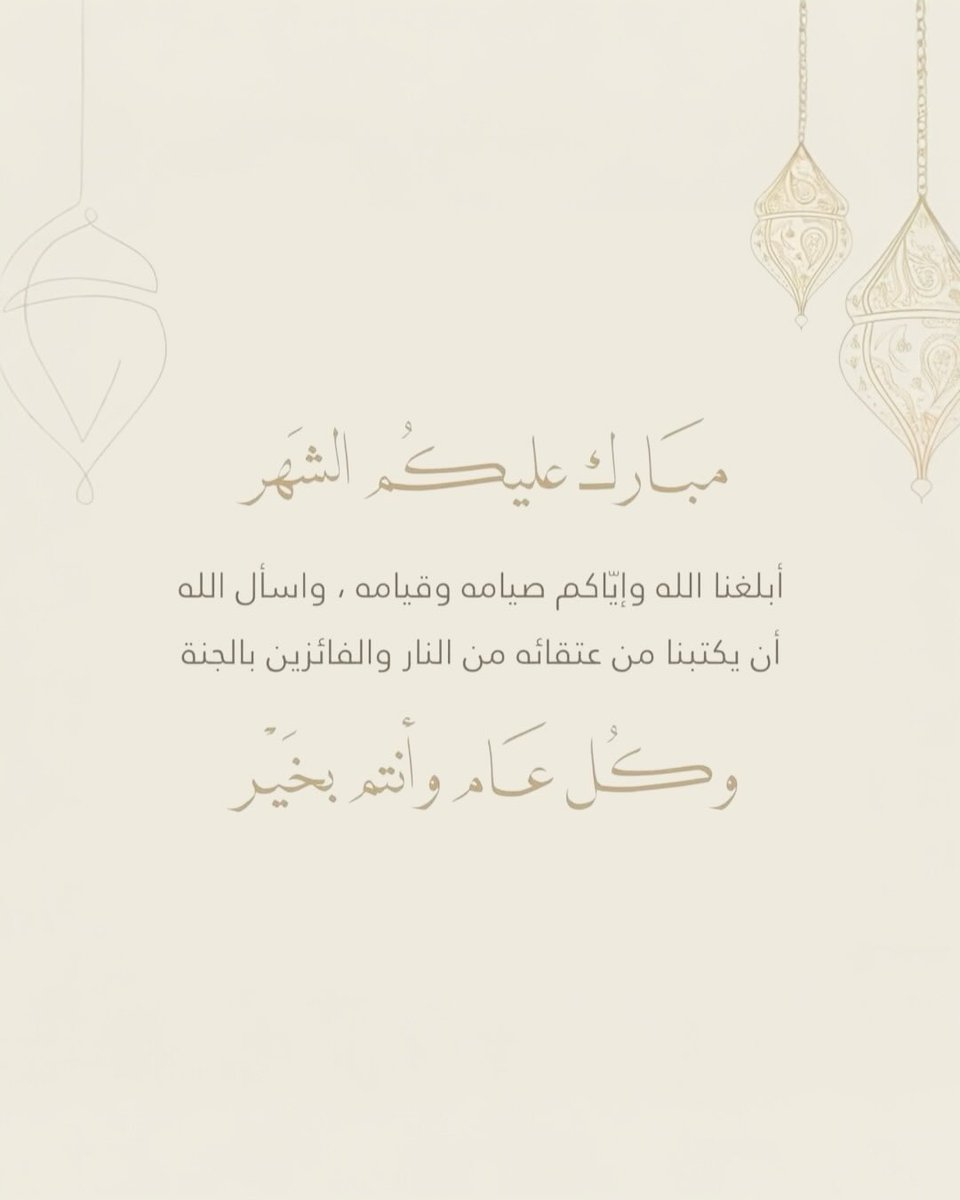 مبَارك عليكُم الشهَر
أبلغنا الله وإيّاكم صيامه وقيامه ، واسأل الله
أن يكتبنا من عتقائه من النار والفائزين بالجنة
وكُل عَام وأنتم بخَيْر